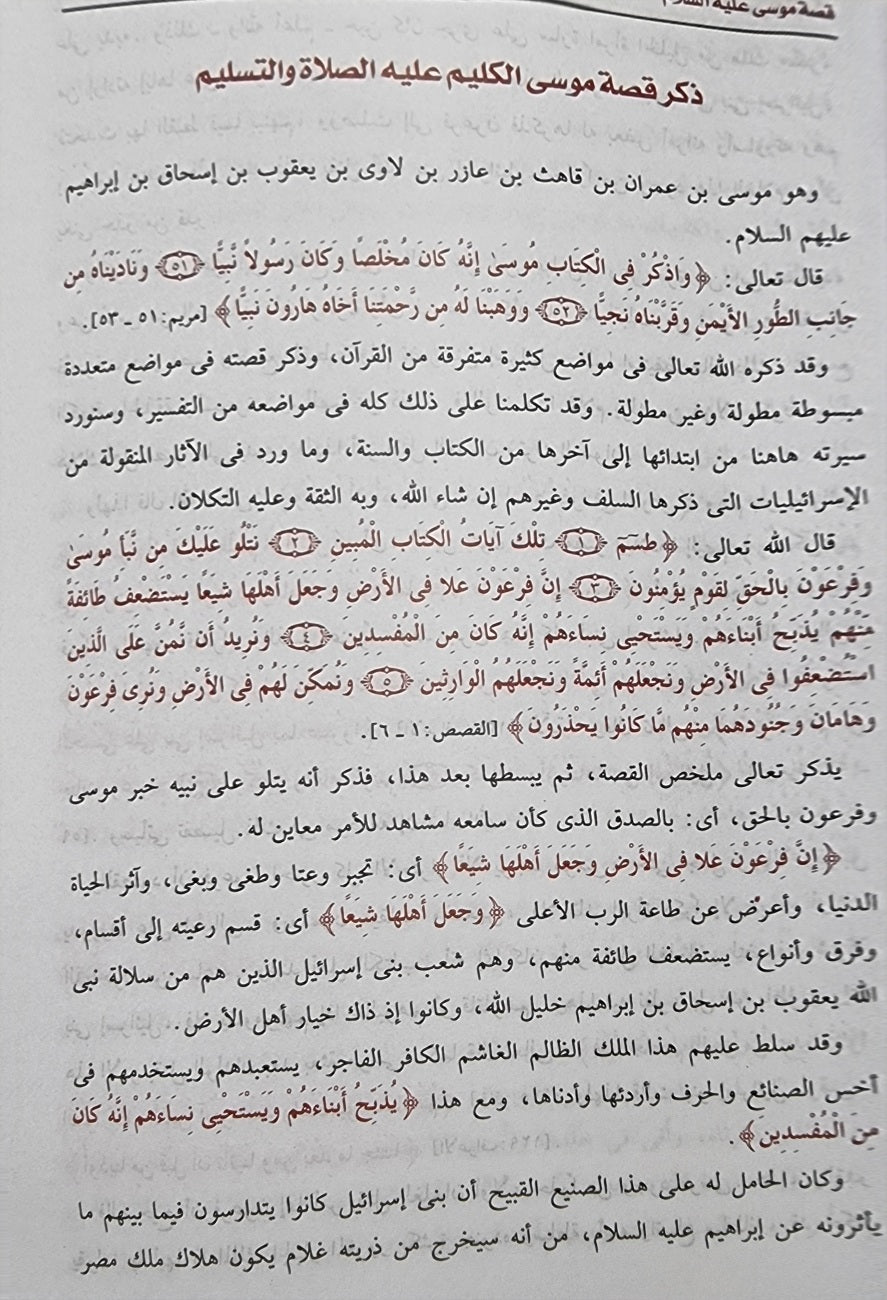 قصة موسى عليه السلام
ذكر قصة موسى الكليم عليه الصلاة والتسليم
وهو موسى بن عمران بن قاهث بن عازر بن لاوى بن يعقوب بن إسحاق بن إبراهيم
عليهم السلام.
قال تعالى: ﴿وَاذْكُرْ فِى الْكِتَابِ مُوسَىٰ إِنَّهُ كَانَ مُخْلَصًا وَكَانَ رَسُولاً نَّبِيًّا ﴿٥١﴾ وَنَادَيْنَاهُ مِن
جَانِبِ الطُّورِ الأَيْمَنِ وَقَرَّبْنَاهُ نَجِيًّا ﴿٥٢﴾ وَوَهَبْنَا لَهُ مِن رَّحْمَتِنَا أَخَاهُ هَارُونَ نَبِيًّا﴾ [مريم: ٥١ ـ ٥٣].
وقد ذكره الله تعالى فى مواضع كثيرة متفرقة من القرآن، وذكر قصته فى مواضع متعددة
مبسوطة مطولة وغير مطولة. وقد تكلمنا على ذلك كله فى مواضعه من التفسير، وسنورد
سيرته هاهنا من ابتدائها إلى آخرها من الكتاب والسنة، وما ورد فى الآثار المنقولة من
الإسرائيليات التى ذكرها السلف وغيرهم إن شاء الله، وبه الثقة وعليه التكلان.
قال الله تعالى: ﴿طسٓمٓ ﴿١﴾ تِلْكَ آيَاتُ الْكِتَابِ الْمُبِينِ ﴿٢﴾ نَتْلُو عَلَيْكَ مِن نَّبَأِ مُوسَىٰ
وَفِرْعَوْنَ بِالْحَقِّ لِقَوْمٍ يُؤْمِنُونَ ﴿٣﴾ إِنَّ فِرْعَوْنَ عَلا فِى الأَرْضِ وَجَعَلَ أَهْلَهَا شِيَعًا يَسْتَضْعِفُ طَائِفَةً
مِّنْهُمْ يُذَبِّحُ أَبْنَاءَهُمْ وَيَسْتَحْيِى نِسَاءَهُمْ إِنَّهُ كَانَ مِنَ الْمُفْسِدِينَ ﴿٤﴾ وَنُرِيدُ أَن نَّمُنَّ عَلَى الَّذِينَ
اسْتُضْعِفُوا فِى الأَرْضِ وَنَجْعَلَهُمْ أَئِمَّةً وَنَجْعَلَهُمُ الْوَارِثِينَ ﴿٥﴾ وَنُمَكِّنَ لَهُمْ فِى الأَرْضِ وَنُرِىَ فِرْعَوْنَ
وَهَامَانَ وَجُنُودَهُمَا مِنْهُم مَّا كَانُوا يَحْذَرُونَ﴾ [القصص: ١ ـ ٦].
يذكر تعالى ملخص القصة، ثم يبسطها بعد هذا، فذكر أنه يتلو على نبيه خبر موسى
وفرعون بالحق، أى: بالصدق الذى كأن سامعه مشاهد للأمر معاين له.
﴿إِنَّ فِرْعَوْنَ عَلا فِى الأَرْضِ وَجَعَلَ أَهْلَهَا شِيَعًا﴾ أى: تجبر وعتا وطغى وبغى، وآثر الحياة
الدنيا، وأعرض عن طاعة الرب الأعلى ﴿وَجَعَلَ أَهْلَهَا شِيَعًا﴾ أى: قسم رعيته إلى أقسام،
وفرق وأنواع، يستضعف طائفة منهم، وهم شعب بنى إسرائيل الذين هم من سلالة نبى
الله يعقوب بن إسحاق بن إبراهيم خليل الله، وكانوا إذ ذاك خيار أهل الأرض.
وقد سلط عليهم هذا الملك الظالم الغاشم الكافر الفاجر، يستعبدهم ويستخدمهم فى
أخس الصنائع والحرف وأردئها وأدناها، ومع هذا ﴿يُذَبِّحُ أَبْنَاءَهُمْ وَيَسْتَحْيِى نِسَاءَهُمْ إِنَّهُ كَانَ
مِنَ الْمُفْسِدِينَ﴾.
وكان الحامل له على هذا الصنيع القبيح أن بنى إسرائيل كانوا يتدارسون فيما بينهم ما
يأثرونه عن إبراهيم عليه السلام، من أنه سيخرج من ذريته غلام يكون هلاك ملك مصر